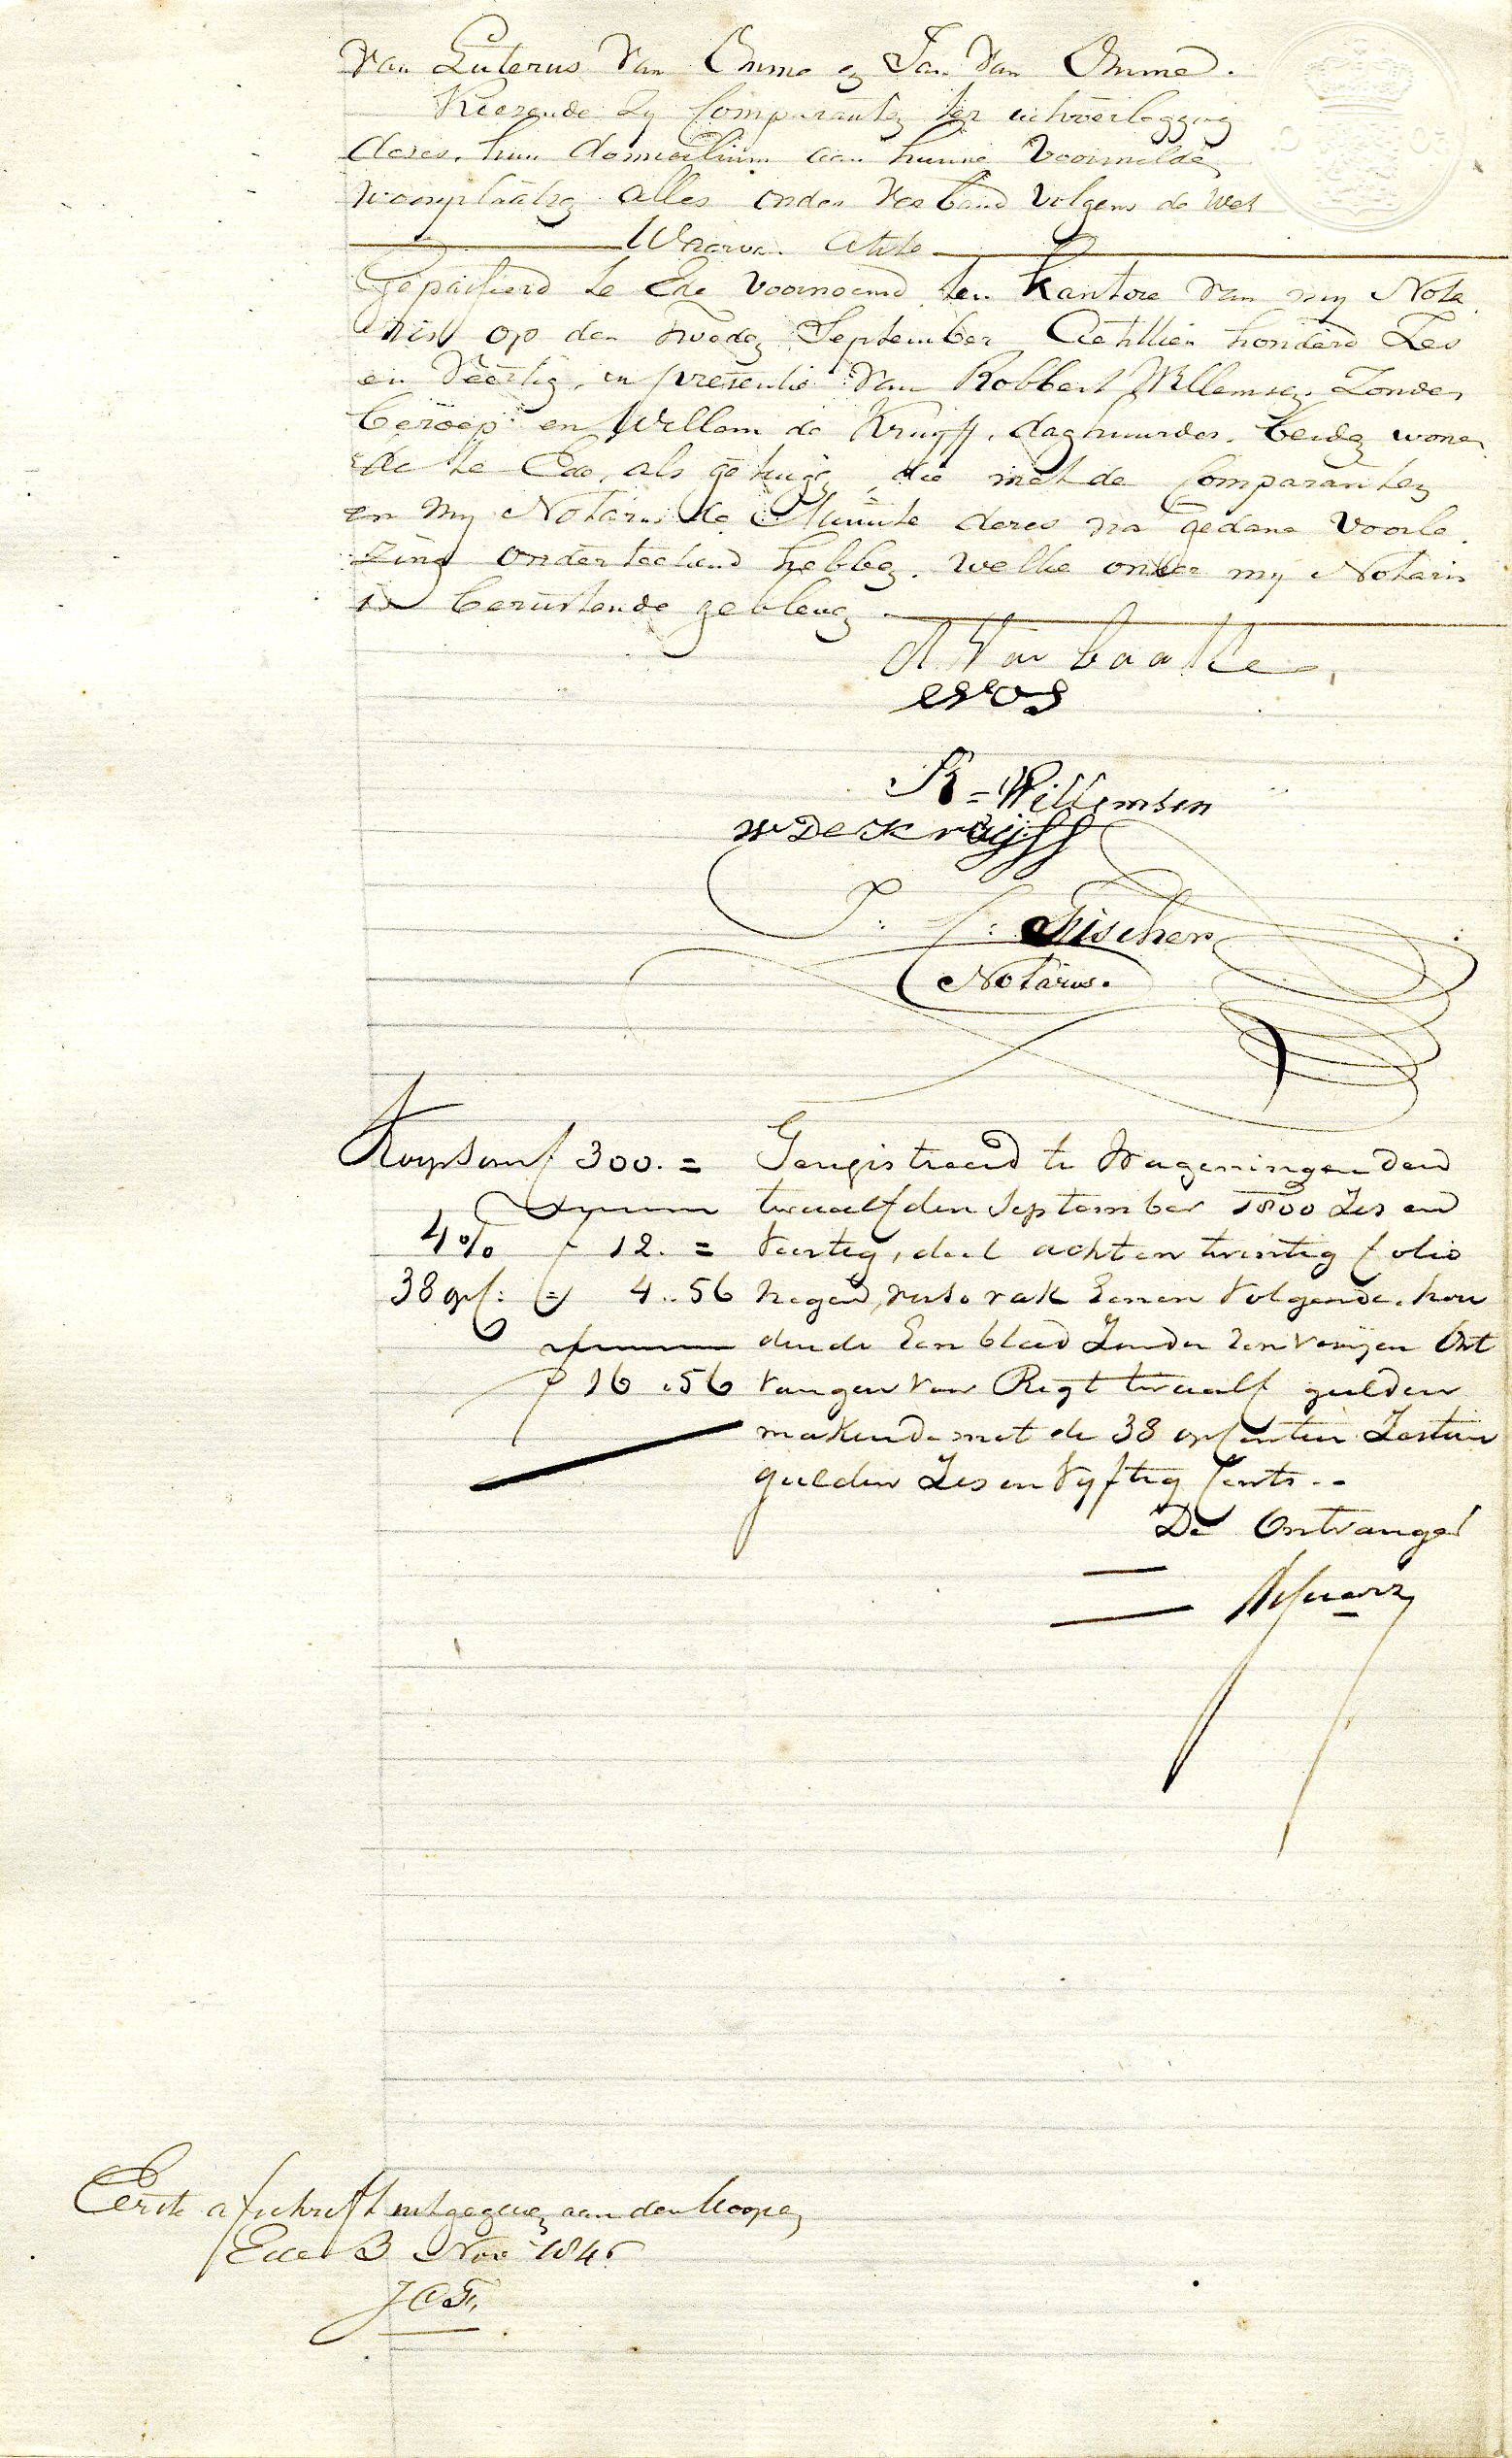 Van Luterus Van Omme en Jan Van Omme.
Kiezende Zy Comparanten ter
dezes, hun domicilium aan hunne Voormelde
woonplaatsen alles onder Verband Volgens de Wet
Waarvan Akte
Gepasseerd te Ede Voornoemd ten Kantore Van my Nota
ris op den tweeden September Achttien honderd Zes
en Veertig, in presentie Van Robbert Willemsen Zonder
beroep en Willem de Kruyff, daghuurder, beiden wonen
de te Ede, als getuigen, die met de Comparanten
en my Notaris de Minute dezes na gedane Voorle
zing onderteekend hebben. welke onder my Notaris
is berustende gebleven
A Van baakle
esvos
R = Willemsen
W De Kruijff
J: C: Fischer
Notaris.
Koopsom f 300. = Geregistreerd te Wageningen den
twaalfden September 1800 Zes en
4% f 12. = Veertig, deel acht en twintig folio
38 opc: = 4..56 negen, verso vak Eenen Volgende. hou
dende Een blad Zonder renvooijen Ont
f 16.56 vangen voor Regt twaalf gulden
makende met de 38 opcenten Zestien
gulden Zes en Vyftig Cents..
De Ontvanger
Eerste afschrift uitgegeven aan den Kooper
Ede 3 Nov 1846
JCF.